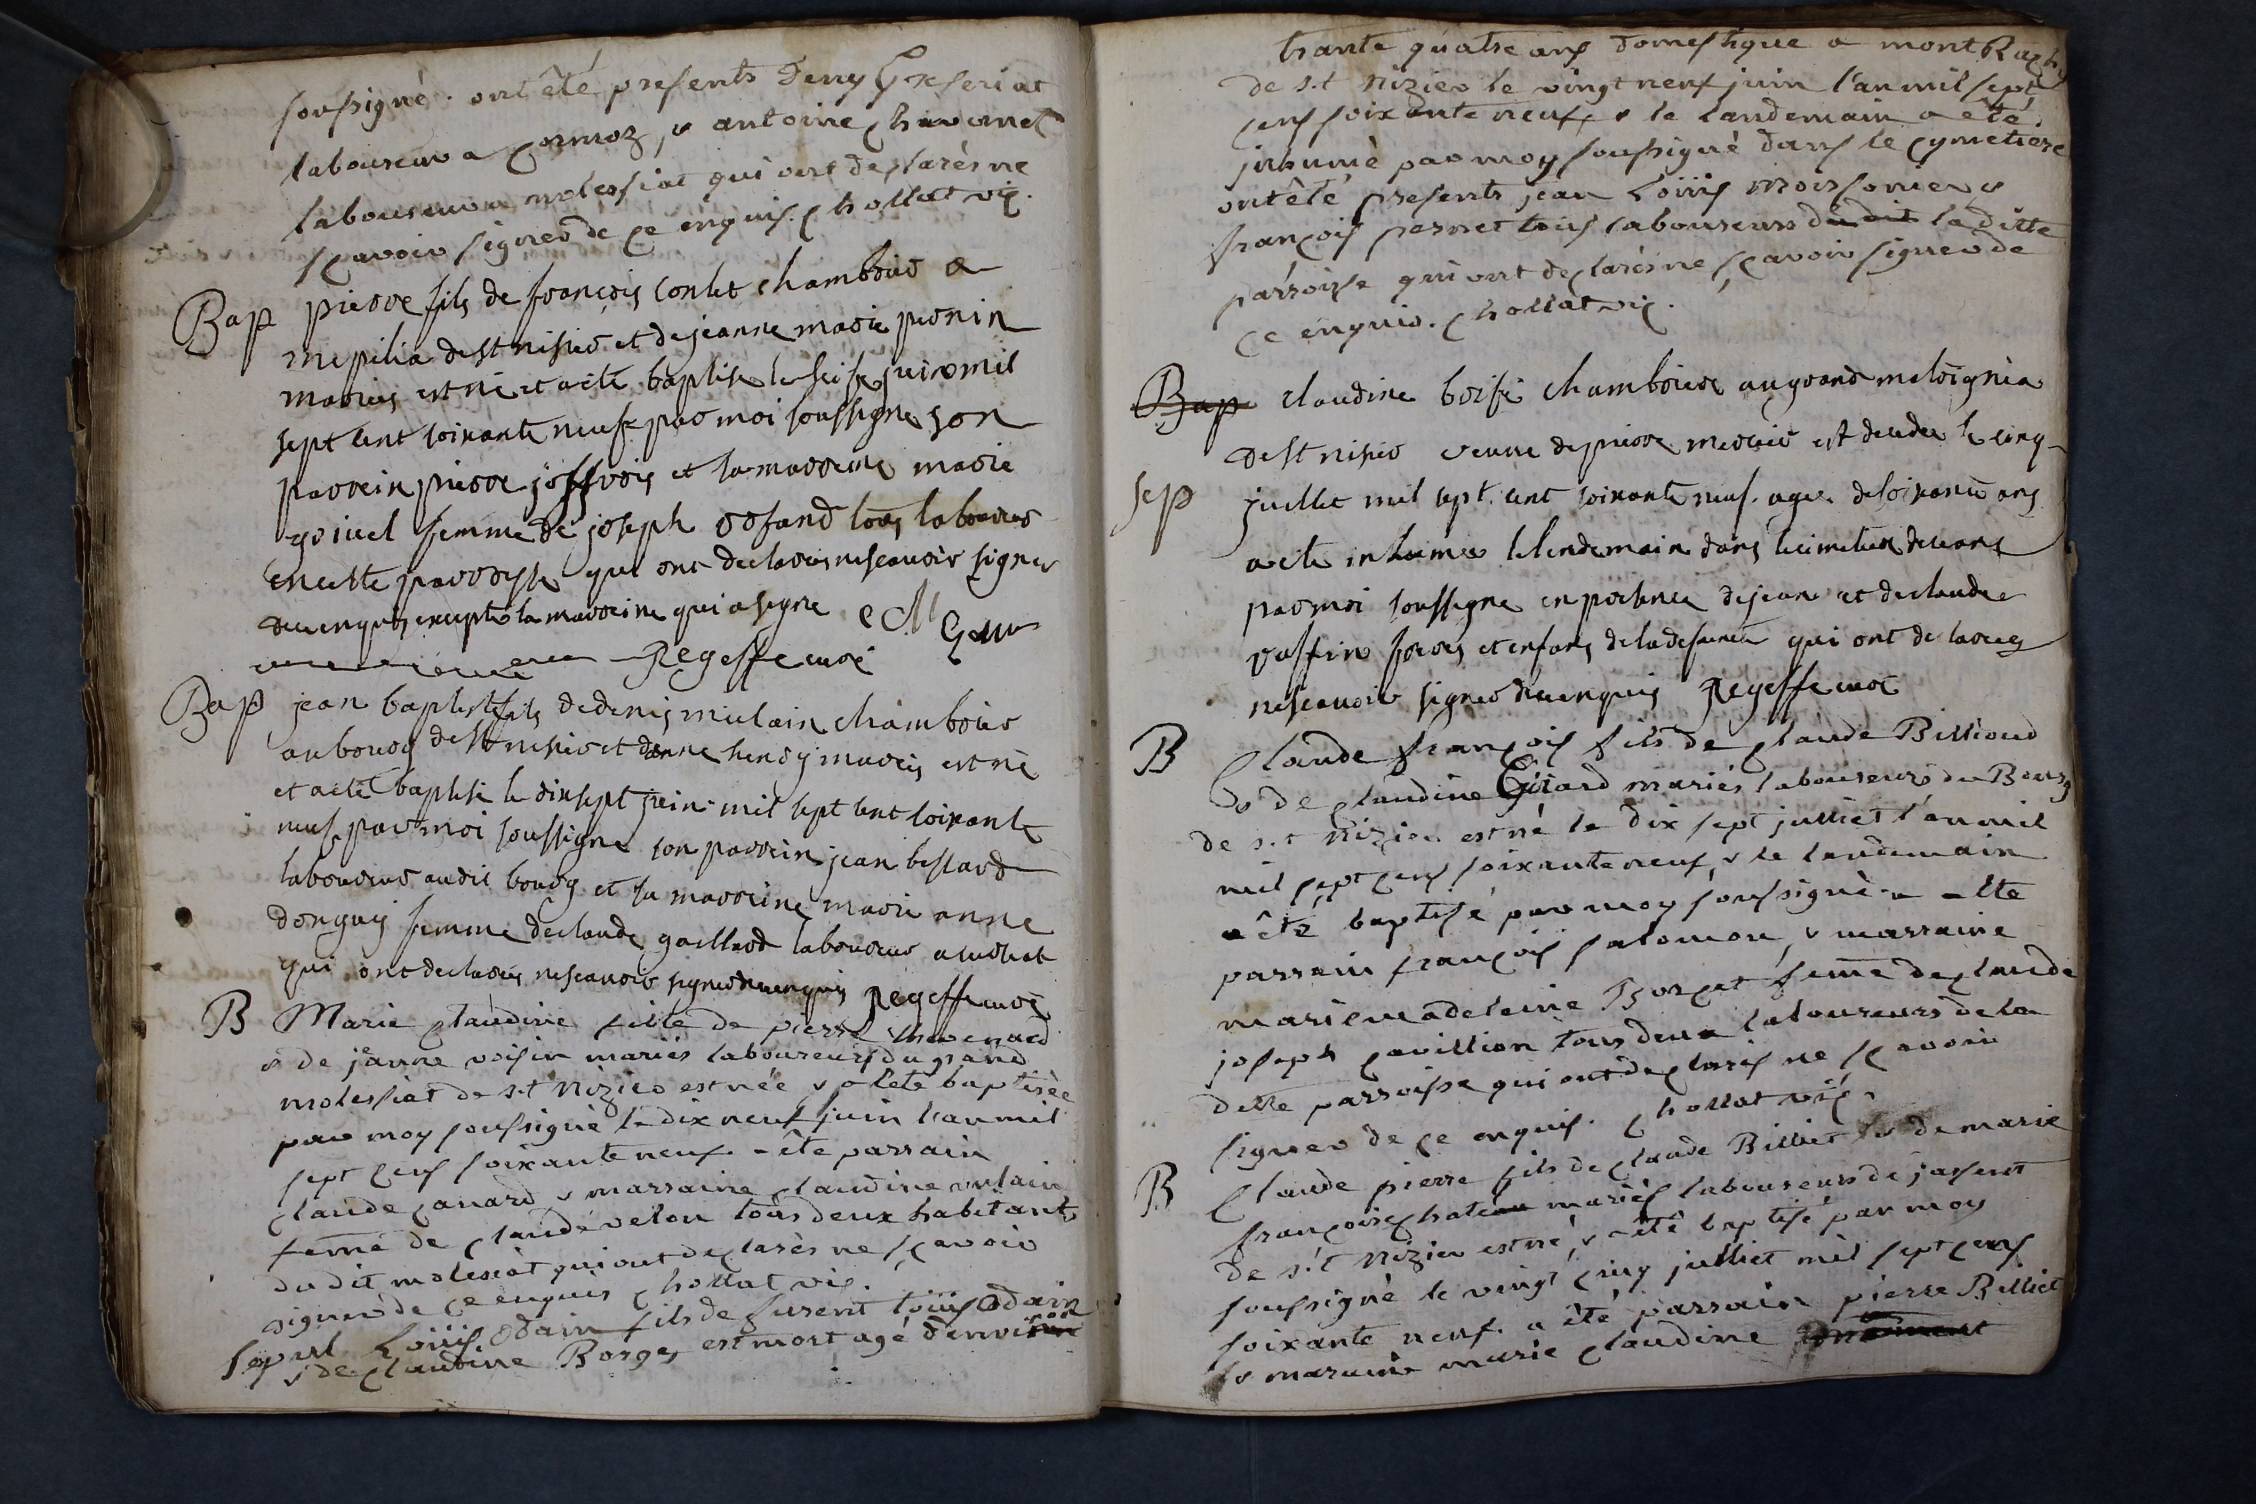 soussigné. ont êté presents Deny
laboureur a Cormoz, & antoine
laboureur a molessiat qui ont declarés ne
sçavoir signer de ce enquis. Chollat vic.
Bap pierre fils de françois conlet chambrier a
mepilia de st nisier et de jeanne marie peonin
mariés est né et a été baptisé le seise juin mil
sept cent soixante neuf par moi soussigné son
parrein pierre joffrois et sa marreine marie
goivel femme de joseph tous laboureurs
en cette parroysse qui ont declarés ne scavoir signer
de ce enquis excepté la marreine qui a signé
Regeffe curé
Bap jean baptiste fils de denis mulain chambrier
au bourg de st nisier et danne hendy mariés est né
et a été baptisé le dix sept juin mil sept cent soixante
neuf par moi soussigné son parrein jean bestard
laboureur au dit bourg et sa marreine marie anne
donguy femme de claude gaillard laboureur a
qui ont declarés ne scavoir signer de ce enquis Regeffe curé
B Marie Claudine fille de pierre thevenard
& de jeanne voisin mariés laboureurs du grand
molessiat de s.t Nizier est née & a êté baptisée
par moy soussigné le dix neuf juin l'an mil
sept cens soixante neuf. a êté parrain
Claude Canard & marraine Claudine mulain
feme de Claude velon tous deux habitants
du dit molessiat qui ont declarés ne sçavoir
signer de ce enquis Chollat vic.
Sepul Loüis Odain fils de furent Loüis Odain
& de Claudine Borges est mort agé d'environ
trante quatre ans domestique a mont
de s.t Nizier le vingt neuf juin l'an mil sept
cens soixante neuf, & le landemain a êté
inhumé par moy soussigné dans le cymetiere
ont êté presents jean Loüis moissonier &
françois pernet tous laboureurs du dit la ditte
parroisse qui ont declarés ne sçavoir signer de
ce enquis. Chollat vic.
Bap claudine boisé chambriere au grand moloignia
Sep de st nisier veuve de pierre mercier est decedée le cinq
juillet mil sept cent soixante neuf agée de soixante ans
a été inhumée le lendemain dans le cimetiere de ceans
par moi soussigné en presence de jean et de claude
vaffin freres et enfans de la defunte qui ont declarés
ne scavoir signer de ce enquis Regeffe curé
B Claude françois fils de Claude Billioud
& de Claudine Girard mariés laboureurs du Bourg
de s.t Nizier est né le dix sept julliet l'an mil
mil sept cens soixante neuf, & le landemain
a êté baptisé par moy soussigné. a etté
parrain françois salomon, & marraine
marie madeleine Borget feme de Claude
joseph Cavillion tous deux laboureurs de la
dette parroisse qui ont declarés ne sçavoir
signer de ce enquis. Chollat vic.
B Claude pierre fils de Claude Billiet & de marie
françoise Chateau mariés laboureurs de jassent
de s.t Nizier est né, & a êté baptisé par moy
soussigné le vingt cinq julliet mil sept cens
soixante neuf. a êté parrain pierre Billiet
& maraine marie Claudine